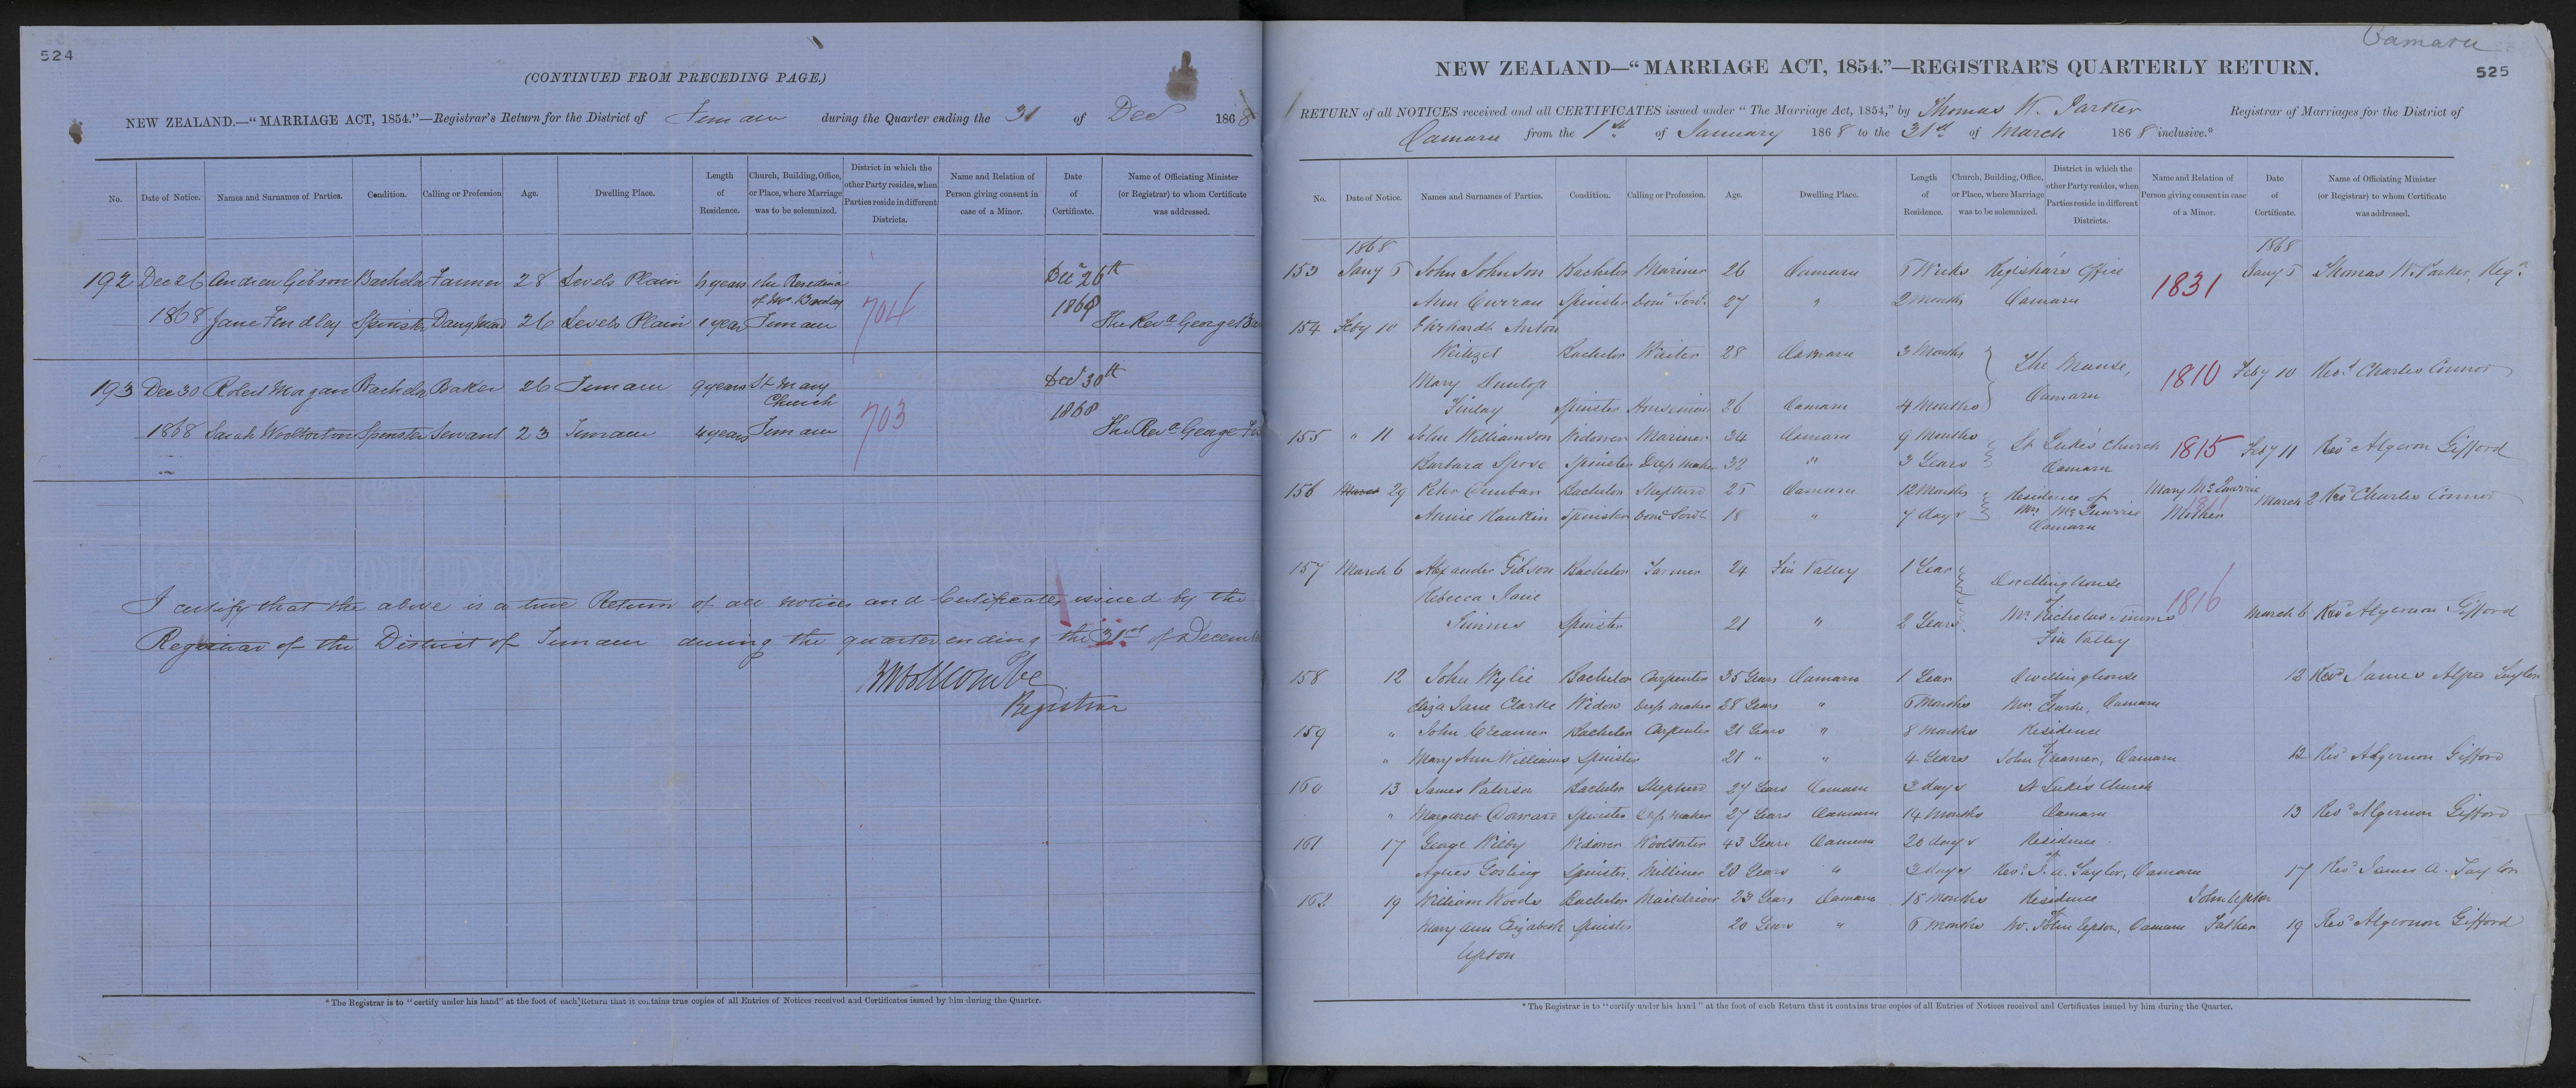 524
(CONTINUED FROM PRECEDING PAGE.)
NEW ZEALAND.—“MARRIAGE ACT, 1854.”—Registrar's Return for the District of Timaru during the Quarter ending the 31 of Decr 1868
No. Date of Notice. Names and Surnames of Parties. Condition. Calling or Profession Age. Dwelling Place. Length of Residence. Church, Building, Office, or Place, where Marriage was to be solemnized. District in which the other Party resides, when Parties reside in different Districts. Name and Relation of Person giving consent in case of a Minor. Date of Certificate. Name of Officiating Minister (or Registrar) to whom Certificate was addressed.
192 Dec 26 Andrew Gibson Bachelor Farmer 28 Levels Plain 6 years the Residence of Mr. Dec 26th
1868 Jane Findlay Spinster 26 Levels Plain 1 year Timaru 704 1868 The Revd George
193 Dec 30 Robert Morgan Bachelor Baker 26 Timaru 9 years St Mary Church Decr 30th
1868 Sarah Woollorton Spinster Servant 23 Timaru 4 years Timaru 703 1868 The Revd George
I certify that the above is a true Return of all notices and Certificates issued by the
Registrar of the District of Timaru during the quarter ending the 31st of Decem
B Woollcombe
Registrar
*The Registrar is to “certify under his hand” at the foot of each Return that it contains true copies of all Entries of Notices received and Certificates issued by him during the Quarter.
Oamaru
525
NEW ZEALAND—“MARRIAGE ACT, 1854.”—REGISTRAR'S QUARTERLY RETURN.
RETURN of all NOTICES received and all CERTIFICATES issued under “The Marriage Act, 1854,” by Thomas W. Parker Registrar of Marriages for the District of
Oamaru from the 1st of January 1868 to the 31st of March 1868 inclusive.*
No. Date of Notice. Names and Surnames of Parties. Condition. Calling or Profession. Age. Dwelling Place. Length of Residence. Church, Building, Office, or Place, where Marriage was to be solemnized. District in which the other Party resides, when Parties reside in different Districts. Name and Relation of Person giving consent in case of a Minor. Date of Certificate. Name of Officiating Minister (or Registrar) to whom Certificate was addressed.
1868 1868
153 Jany 5 John Johnson Bachelor Mariner 26 Oamaru 5 Weeks Registrar's Office 1831 Jany 5 Thomas W. Parker, Regr
Ann Curran Spinster Domc Servt 27 " 2 months Oamaru
154 Feby 10 Ehrhardt Anton
Weitzel Bachelor Waiter 28 Oamaru 3 Months The Manse, 1810 Feby 10 Revd Charles Connor
Mary Dunlop Oamaru
Finlay Spinster Housemaid 26 Oamaru 4 Months
155 " 11 John Williamson Widower Mariner 34 Oamaru 9 Months St Luke's Church 1815 Feby 11 Revd Algernon Gifford
Barbara Spose Spinster Dress maker 32 " 3 Years Oamaru
156 March 29 Peter Bachelor Shepherd 25 Oamaru 12 Months Residence of Mary McQuarrie March 2 Revd Charles Connor
Annie Rankin Spinster Domc Servt 18 " 7 days Mrs McQuarrie 1811 Mother
Oamaru
157 March 6 Alexander Gibson Bachelor Farmer 24 Fin Valley 1 Year Dwellinghouse
Rebecca Jane of 1816
Simms Spinster 21 " 2 Years Mr. Nicholas Simms March 6 Revd Algernon Gifford
Fin Valley
158 12 John Wylie Bachelor Carpenter 35 Years Oamaru 1 Year Dwellinghouse 12 Revd James Taylor
Eliza Jane Clarke Widow Dress maker 28 Years " 5 Months of Mrs. Clarke, Oamaru
159 " John Creamer Bachelor Carpenter 21 Years " 8 months Residence
" Mary Ann Williams Spinster 21 " " 4 Years of John Creamer, Oamaru 12 Revd Algernon Gifford
160 13 James Paterson Bachelor Shepherd 27 Years Oamaru 3 days St Luke's Church
" Margaret Spinster Dress maker 27 Years Oamaru 14 Months Oamaru 13 Revd Algernon Gifford
161 17 George Wilby Widower Woolsorter 43 Years Oamaru 20 days Residence
Agnes Gosling Spinster. Milliner 20 Years " 3 days of Revd J. A. Taylor, Oamaru 17 Revd James A. Taylor
162 19 William Woods Bachelor Maildriver 23 Years Oamaru 18 Months Residence John Upton
Mary Ann Elizabeth Spinster 20 Years " 5 Months of Mr. John Upton, Oamaru Father 19 Revd Algernon Gifford
Upton
*The Registrar is to “certify under his hand” at the foot of each Return that it contains true copies of all Entries of Notices received and Certificates issued by him during the Quarter.